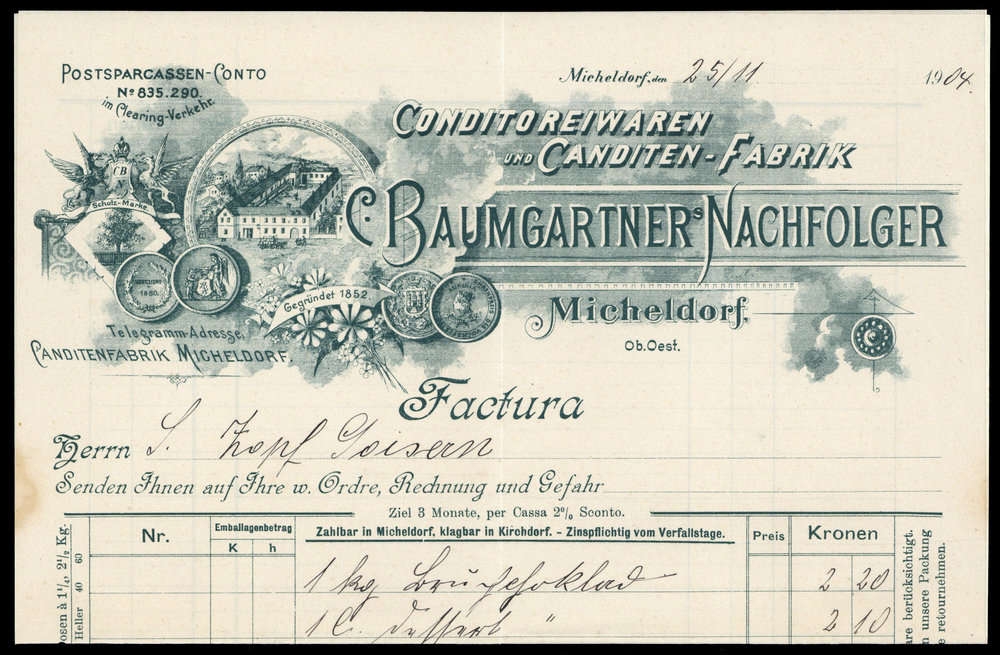 POSTSPARCASSEN-CONTO
Nº 835.290.
im Clearing-Verkehr.
Micheldorf, den 25/11 1904.
CONDITOREIWAREN
UND CANDITEN-FABRIK
C. BAUMGARTNERS NACHFOLGER
CB
N
Schutz-Marke
1880.
Gegründet 1852
Micheldorf.
Ob.Oest.
Telegramm-Adresse,
CANDITENFABRIK MICHELDORF.
Factura
Herrn S. Zopf Goisern
Senden Ihnen auf Ihre w. Ordre, Rechnung und Gefahr
Ziel 3 Monate, per Cassa 2% Sconto.
Nr. Emballagenbetrag Zahlbar in Micheldorf, klagbar in Kirchdorf. - Zinspflichtig vom Verfallstage. Preis Kronen
K h
1 kg Bruchchoklad 2 20
1 C. Dessert " 2 10
Dosen à 1¼, 2½ Kg.
Heller 40 60
are berücksichtigt.
n unsere Packung
e retournehmen.